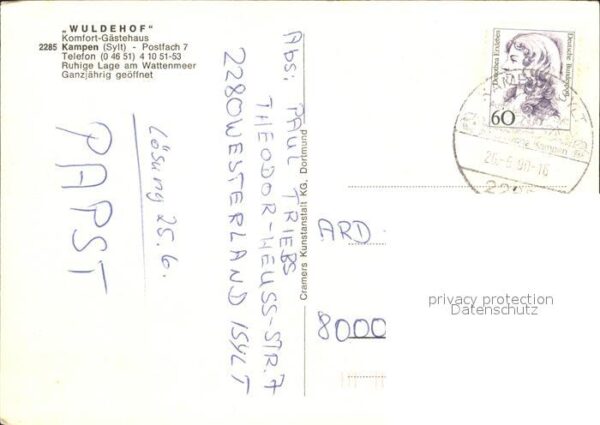 „WULDEHOF"
Komfort-Gästehaus
2285 Kampen (Sylt) - Postfach 7
Telefon (0 46 51) 4 10 51-53
Ruhige Lage am Wattenmeer
Ganzjährig geöffnet
Lösung 25.6.
PAPST
Abs: PAUL TRIEBS
THEODOR-HEUSS-STR. 7
2280 WESTERLAND / SYLT
Cramers Kunstanstalt KG, Dortmund
Dorothea Erxleben
Deutsche Bundespost
60
ARD
8000
privacy protection
Datenschutz